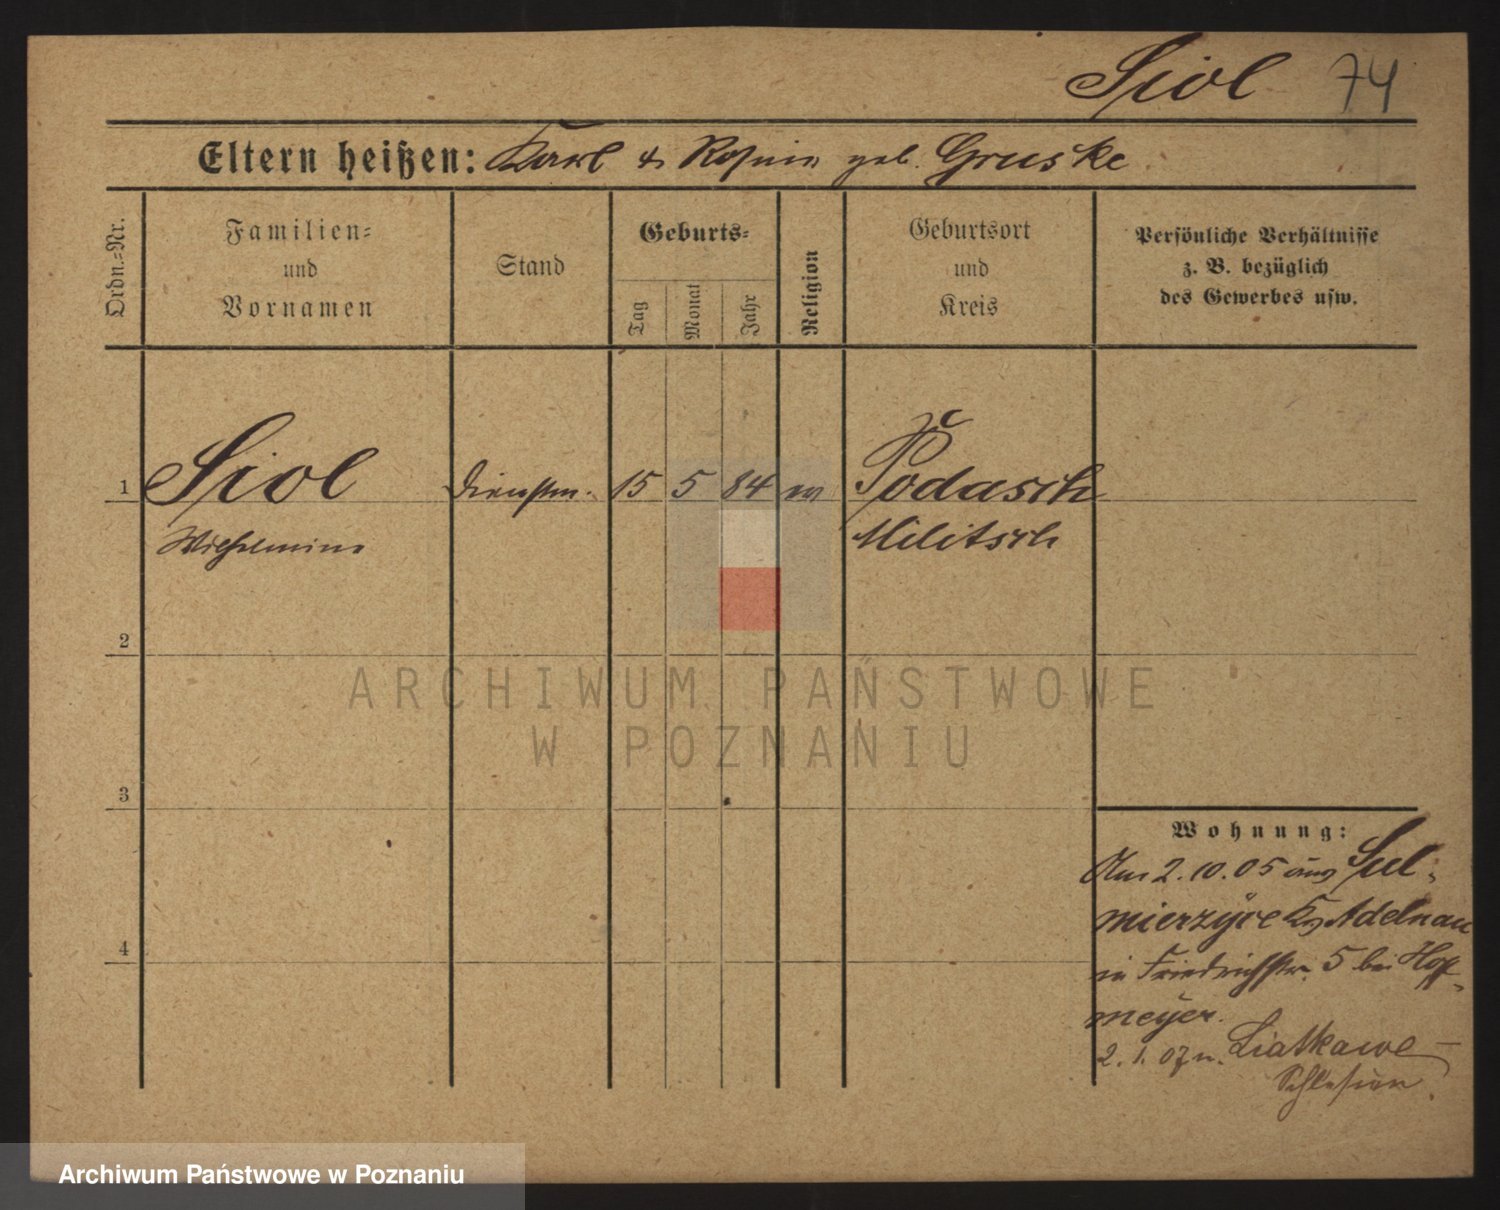 Siol 74
Eltern heißen: Karl & Rosina geb. Gruske
Ordn.-Nr.
Familien-
und
Vornamen
Stand
Geburts-
Tag
Monat
Jahr
Religion
Geburtsort
und
Kreis
Persönliche Verhältnisse
z. B. bezüglich
des Gewerbes usw.
1 Siol Dienstm. 15 5 84 ev Podasch
Wilhelmine Militsch
2
3
4
ARCHIWUM PAŃSTWOWE
W POZNANIU
Wohnung:
Am 2.10.05 aus Sul-
mierzyce Kr. Adelnau
in Friedrichstr. 5 bei Hoff-
meyer.
2.1.07 n. Liatkawe-
Schlesien.
Archiwum Państwowe w Poznaniu